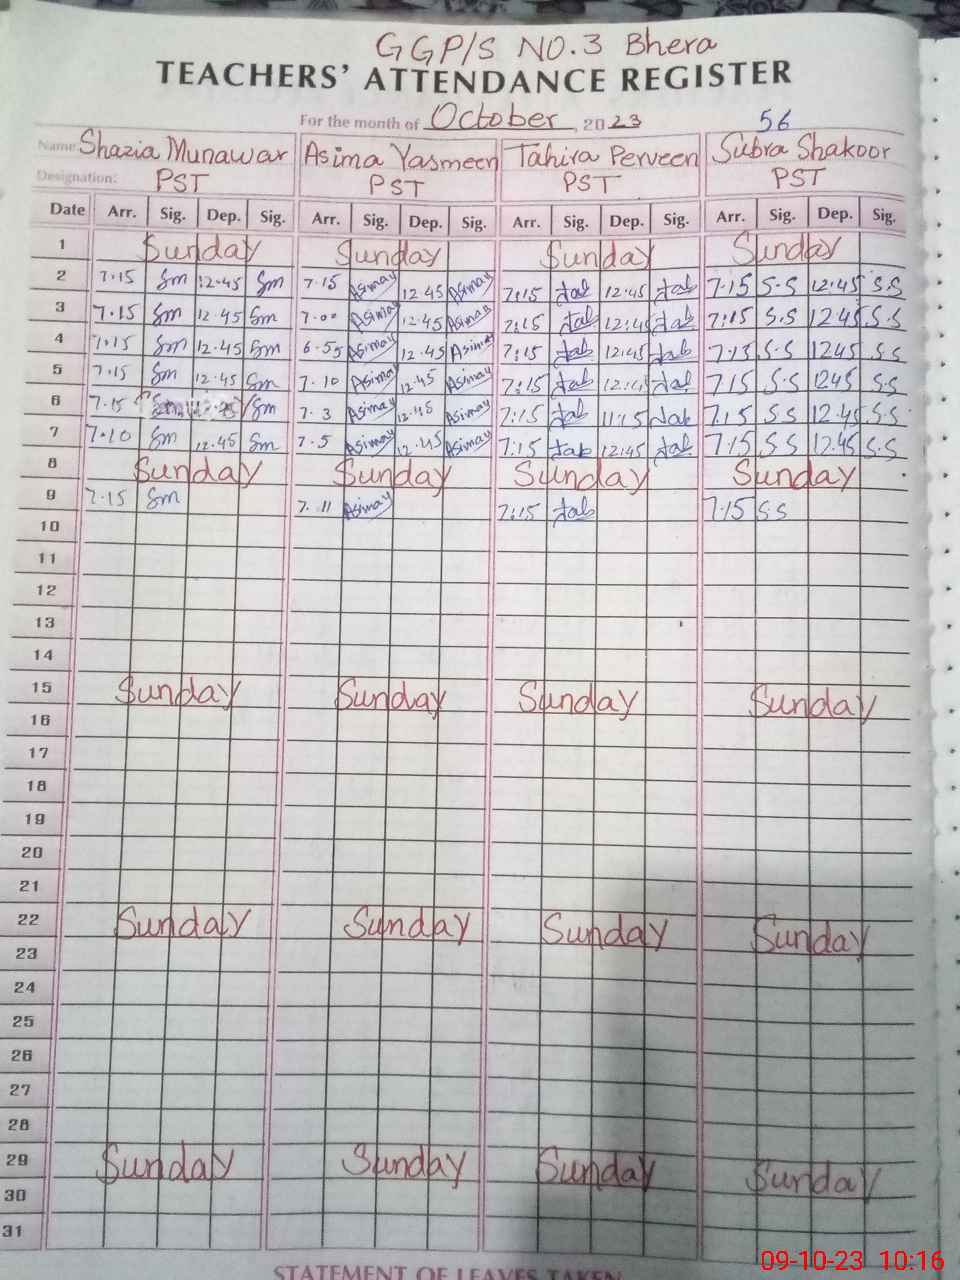 GGP/S NO.3 Bhera
TEACHERS' ATTENDANCE REGISTER
For the month of October, 2023 56
Name: Shazia Munawar Asima Yasmeen Tahira Perveen Subra Shakoor
Designation: PST PST PST PST
Date Arr. Sig. Dep. Sig. Arr. Sig. Dep. Sig. Arr. Sig. Dep. Sig. Arr. Sig. Dep. Sig.
1 Sunday Sunday Sunday Sunday
2 7.15 Sm 12.45 Sm 7.15 Asimay 12.45 Asimay 7:15 12:45 7.15 S.S 12:45 S.S
3 7.15 Sm 12.45 Sm 7.00 Asimay 12.45 Asimay 7:15 7:15 S.S 12.45 S.S
4 7.15 Sm 12.45 Sm 6-55 Asimay 12.45 Asimay 7:15 12:45 S.S 1245 S.S
5 7.15 Sm 12.45 Sm 7.10 Asimay 12.45 Asimay 7:15 715 S.S 1245 S.S
6 7.15 Sm 7.3 Asimay 12.45 Asimay 7:15 11:15 7.15 S S 12.45 S.S
7 7.10 Sm 12.45 Sm 7.5 Asimay 12.45 Asimay 7.15 12:45 7.15 S S 12.45 S.S
8 Sunday Sunday Sunday Sunday
9 7.15 Sm 7.11 Asimay 7:15 7.15 S.S
10
11
12
13
14
15 Sunday Sunday Sunday Sunday
16
17
18
19
20
21
22 Sunday Sunday Sunday Sunday
23
24
25
26
27
28
29 Sunday Sunday Sunday Sunday
30
31
STATEMENT OF LEAVES TAKEN
09-10-23 10:16